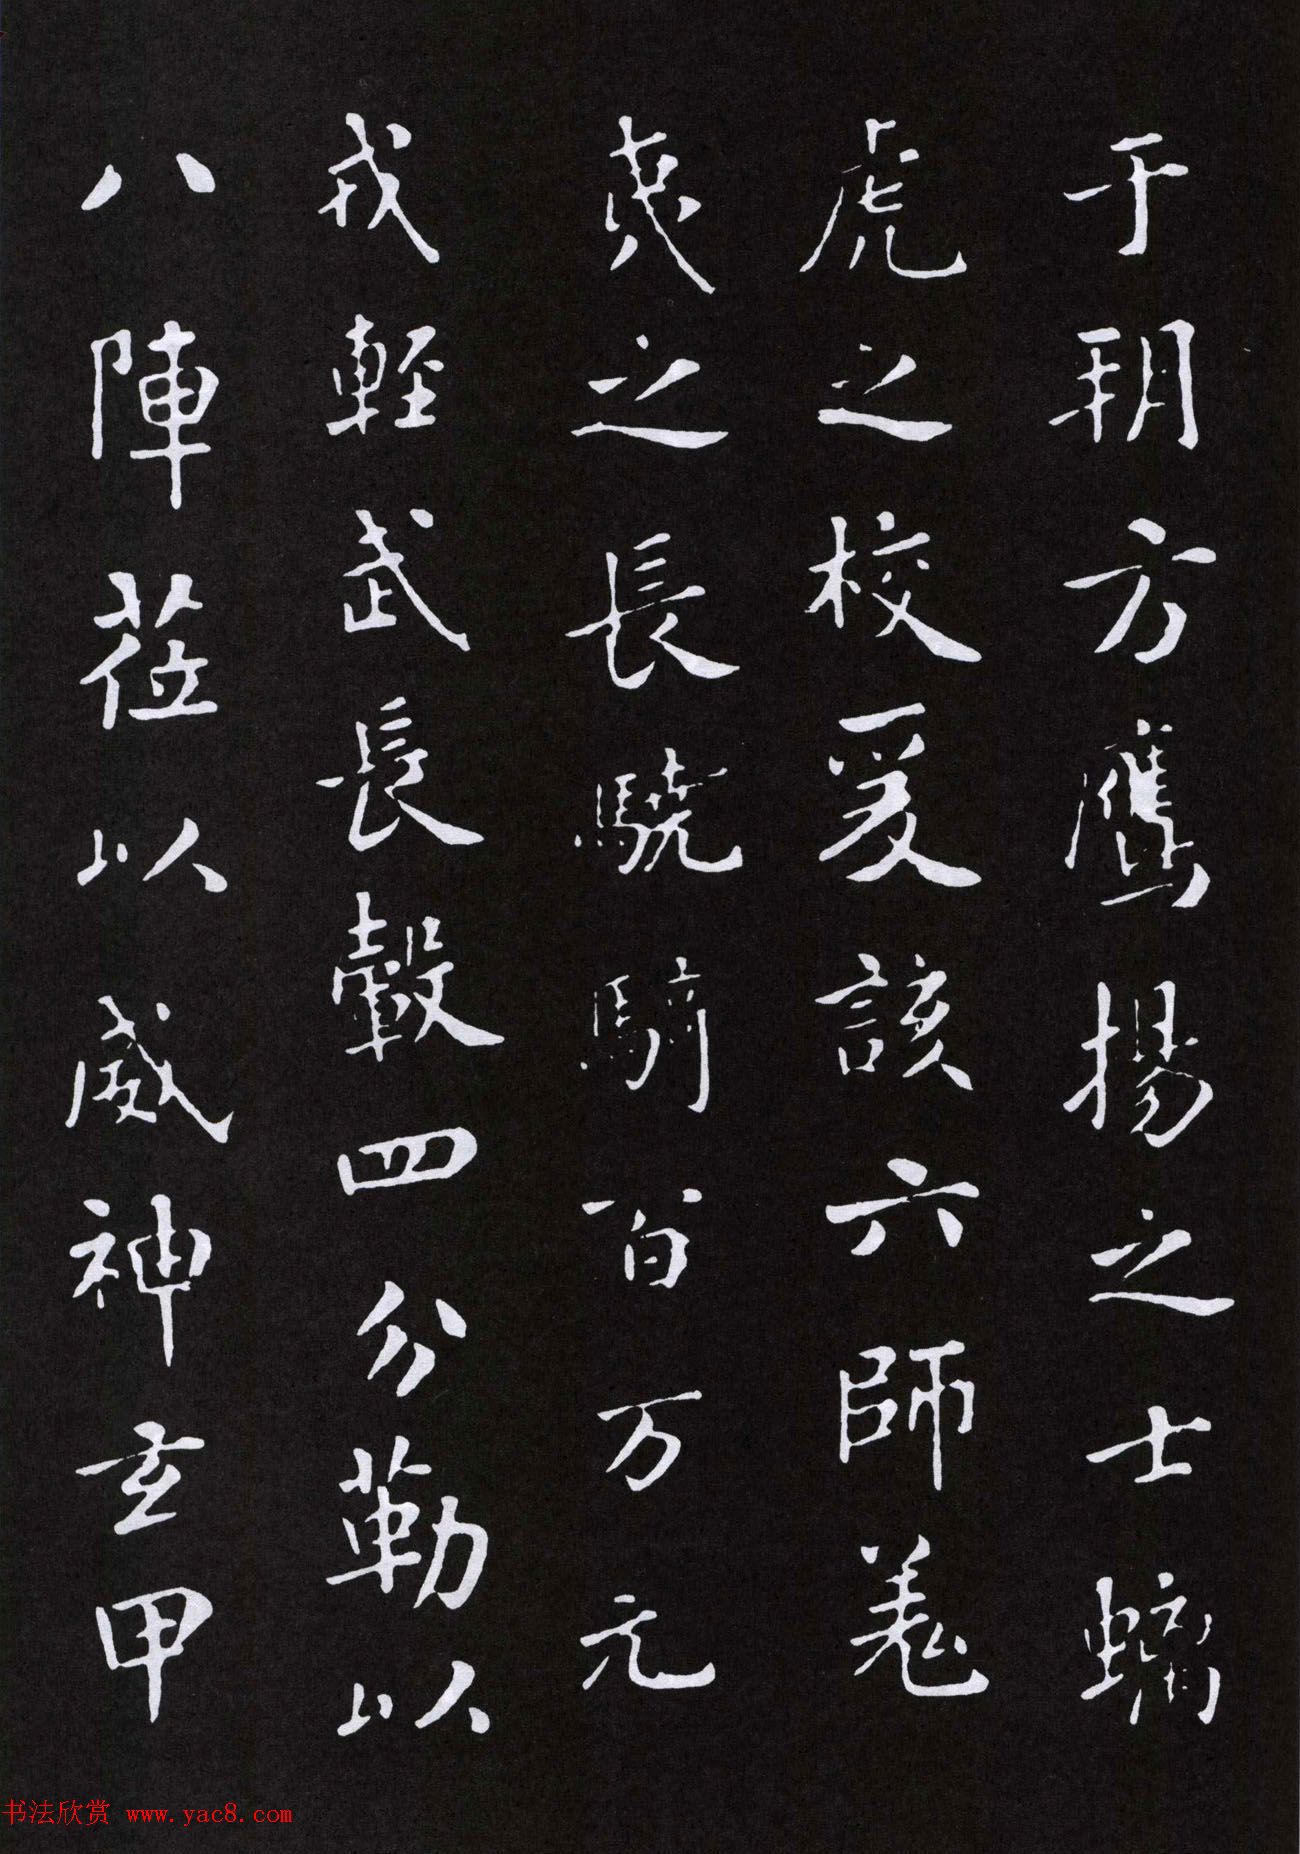 于朔方鷹揚之士螭
虎之校爰該六師羗
夷之長驍騎百万元
戎輕武長轂四分勒以
八陣莅以威神玄甲
书法欣赏 www.yac8.com